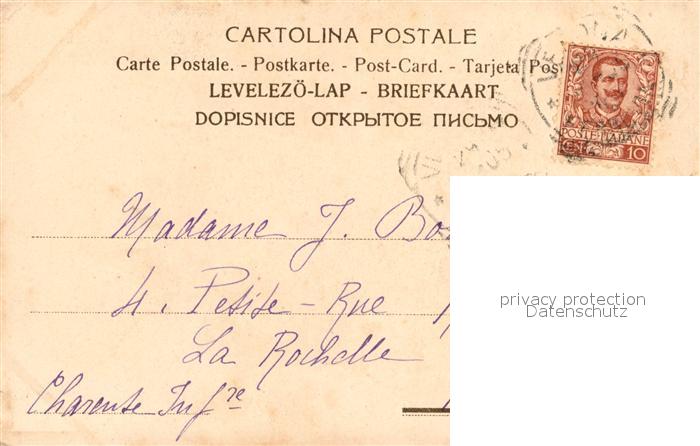 CARTOLINA POSTALE
Carte Postale. - Postkarte. - Post-Card. - Tarjeta Pos
LEVELEZÖ-LAP - BRIEFKAART
DOPISNICE ОТКРЫТОЕ ПИСЬМО
POSTE ITALIANE
10
Madame J. Bo
4. Petite-Rue
La Rochelle
Charente Infre
privacy protection
Datenschutz